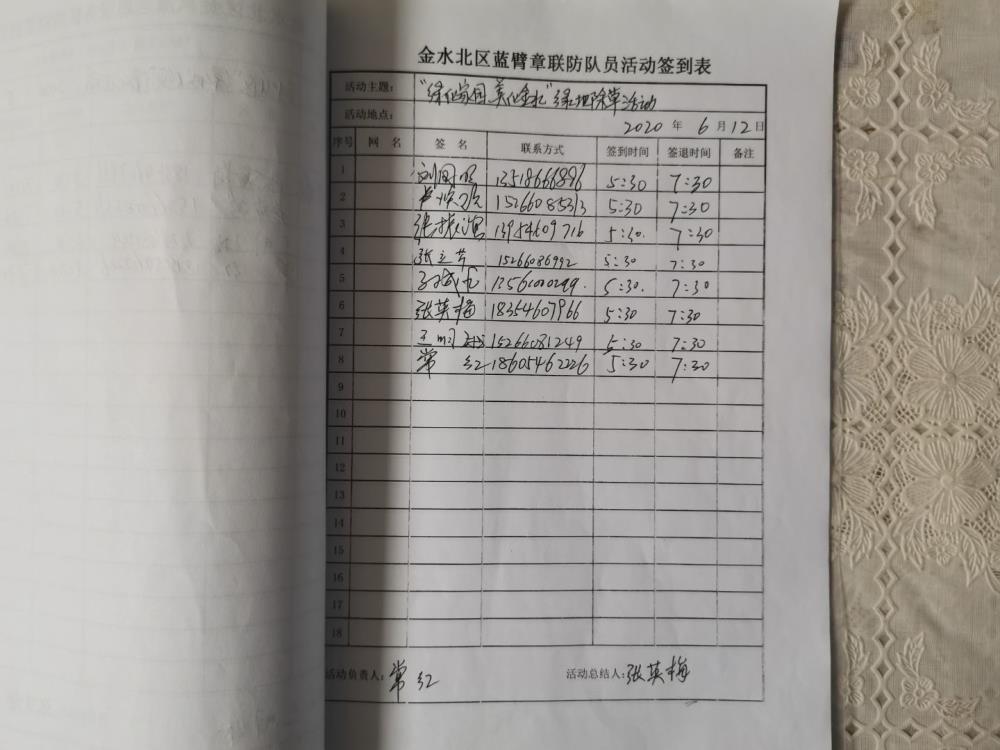 金水北区蓝臂章联防队员活动签到表
活动主题： "绿化家园 美化金北"绿地除草活动
活动地点：
2020 年 6 月 12 日
序号 网 名 签 名 联系方式 签到时间 签退时间 备注
1 刘国明 13518666896 5:30 7:30
2 15266085313 5:30 7:30
3 张振鸿 13954609716 5:30. 7:30
4 张立芹 15266086992 5:30 7:30
5 5:30. 7:30
6 张英梅 18354607966 5:30 7:30
7 王 15266081249 5:30 7:30
8 常红 18605462226 5:30 7:30
9
10
11
12
13
14
15
16
17
18
活动负责人：常红 活动总结人：张英梅